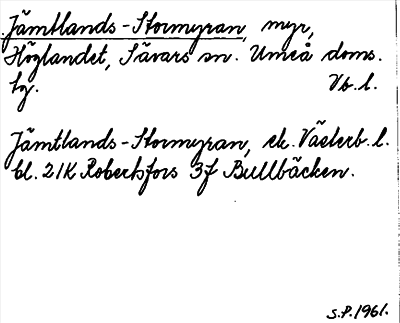 Jämtlands-Stormyran, myr,
Höglandet, Sävars sn. Umeå doms.
tg. Vb.l.
Jämtlands-Stormyran, ek. Västerb.l.
bl. 21K Robertsfors 3f Bullbäcken.
S.P. 1961.